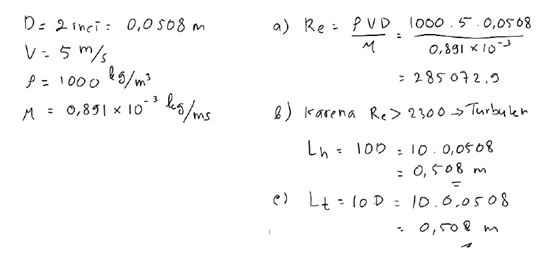 D = 2 inci = 0,0508 m
V = 5 m/s
ρ = 1000 kg/m³
μ = 0,891 × 10⁻³ kg/ms
a) Re = ρVD/μ = 1000 . 5 . 0,0508 / 0,891 × 10⁻³
= 285072,9
b) karena Re > 2300 → Turbulen
Lh = 10D = 10 . 0,0508
= 0,508 m
c) Lt = 10D = 10 . 0,0508
= 0,508 m